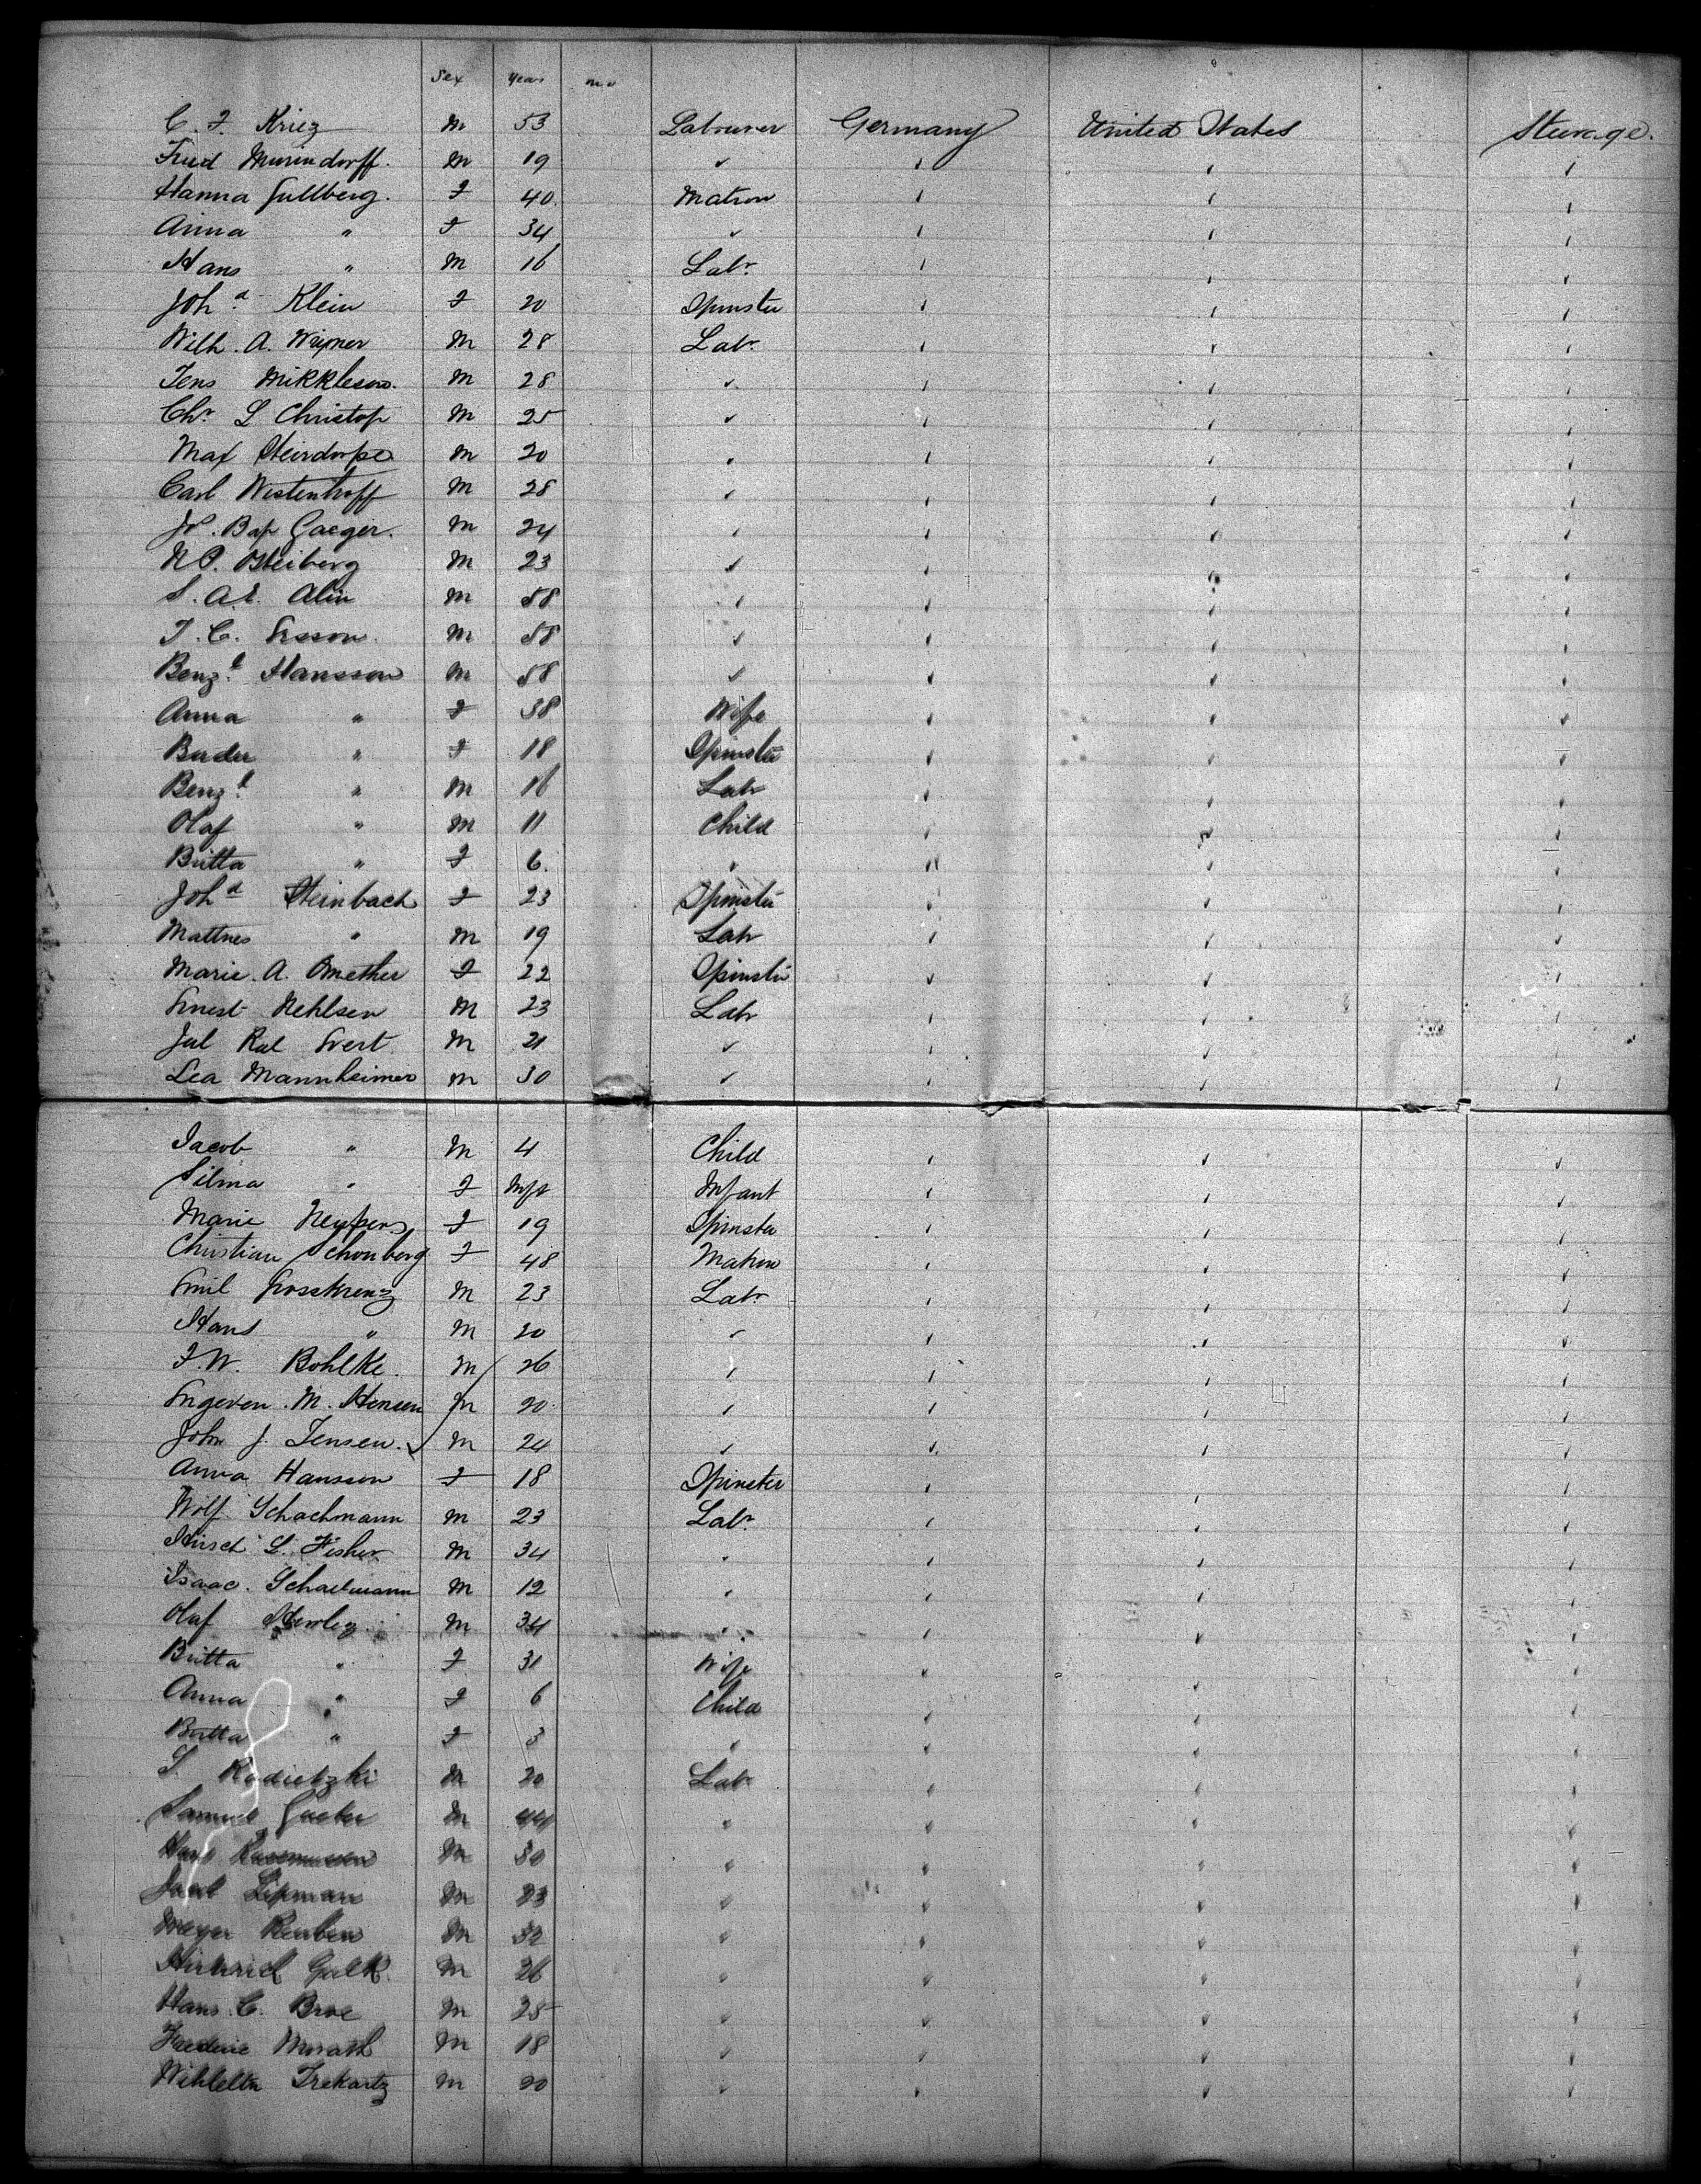 Sex Years mo
C. F. Krieg M 53 Labourer Germany United States Steerage.
Fried M 19 ✓
Hanna Gullberg. F 40 Matron
Anna " F 34 ✓
Hans " M 16 Labr
Joh.a Klein F 20 Spinster
Wilh. A. M 28 Labr
Jens Mikkleson. M 28 ✓
Chr L Christop M 25 ✓
Max M 20
Carl Westenhoff M 28 ✓
Jos. Bap Gaeger. M 24
N P. M 23 ✓
S. A. E. Alin M 58
J. C. M 58 ✓
Beng.t Hansson M 58 ✓
Anna " F 38 Wife
" F 18 Spinster
Beng.t " M 16 Labr
Olaf " M 11 Child
Britta " F 6. "
Joh.a Steinbach F 23 Spinster
" M 19 Labr
Marie. A. F 22 Spinster
Ernest Nehlsen M 23 Labr
Jul Evert M 21 ✓
Lea Mannheimer M 30 ✓
Jacob " M 4 Child
Silma " F Inft Infant
Marie F 19 Spinster
Christian Schonberg F 48 Matron
Emil M 23 Labr
Hans " M 20 ✓
F. W. Bohlke. M 26
M. Hensen M 20. ✓
John J. Jensen. M 24 ✓
Anna Hansson F 18 Spinster
Wolf Schachmann M 23 Labr
Hirsch L. Fisher M 34
Isaac. M 12
Olaf M 34
Britta " F 31 Wife
Anna " F 6 Child
Britta " F 3 ✓
S. Radietzki M 20 Labr
Samuel M 44 "
Hans Rasmussen M 30 "
Jacob Lipman M 23 "
Meyer Reuben M 32 "
M 26 "
Hans. C. Broe M 25 "
Frederic Morath M 18 ✓
M 20 ✓